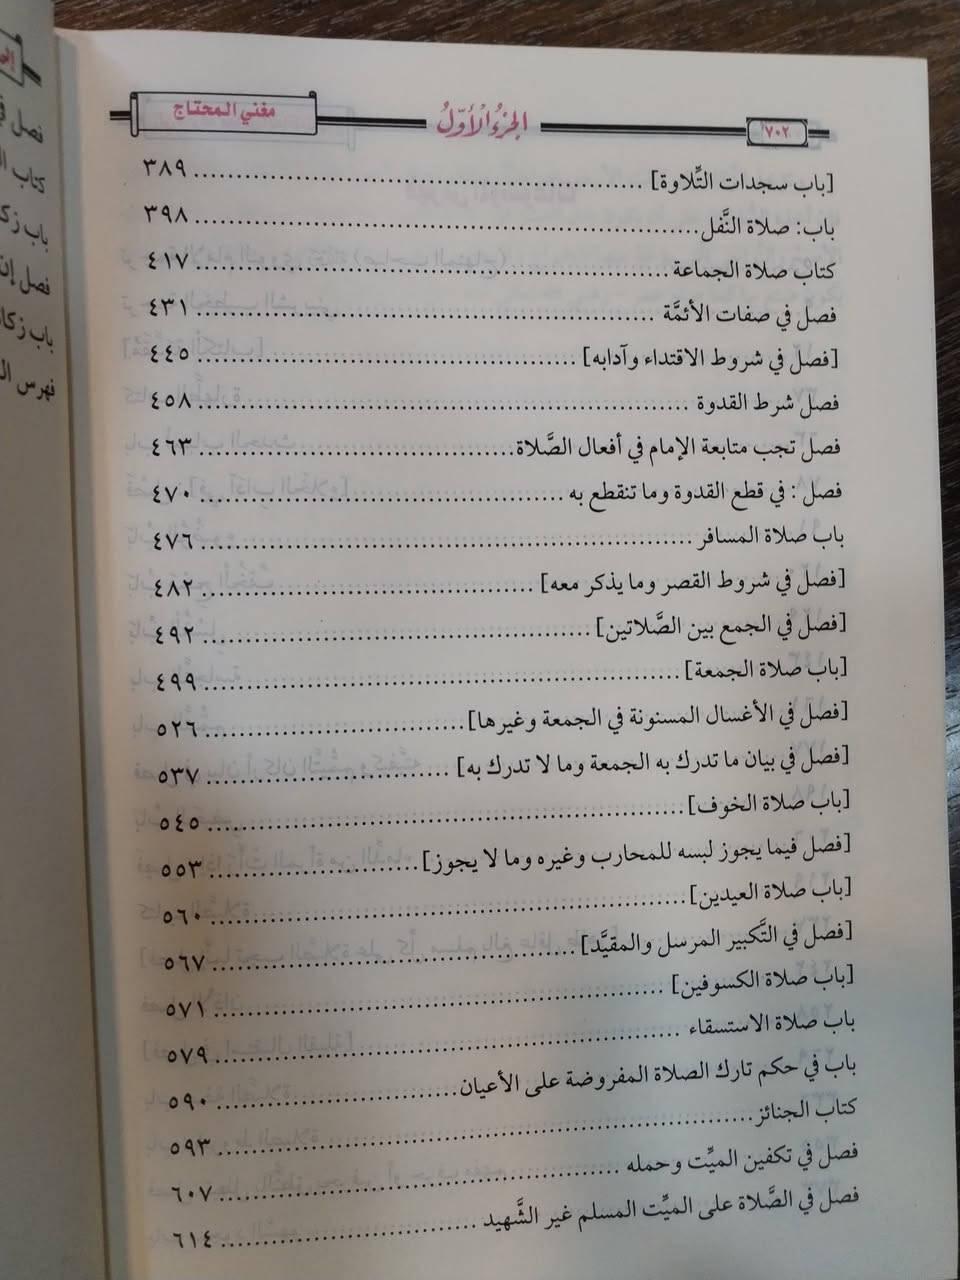 ٧٠٢ الجزء الأول مغني المحتاج
[باب سجدات التِّلاوة] ٣٨٩
باب: صلاة النَّفل ٣٩٨
كتاب صلاة الجماعة ٤١٧
فصل في صفات الأئمَّة ٤٣١
[فصل في شروط الاقتداء وآدابه] ٤٤٥
فصل شرط القدوة ٤٥٨
فصل تجب متابعة الإمام في أفعال الصَّلاة ٤٦٣
فصل: في قطع القدوة وما تنقطع به ٤٧٠
باب صلاة المسافر ٤٧٦
[فصل في شروط القصر وما يذكر معه] ٤٨٢
[فصل في الجمع بين الصَّلاتين] ٤٩٢
[باب صلاة الجمعة] ٤٩٩
[فصل في الأغسال المسنونة في الجمعة وغيرها] ٥٢٦
[فصل في بيان ما تدرك به الجمعة وما لا تدرك به] ٥٣٧
[باب صلاة الخوف] ٥٤٥
[فصل فيما يجوز لبسه للمحارب وغيره وما لا يجوز] ٥٥٣
[باب صلاة العيدين] ٥٦٠
[فصل في التَّكبير المرسل والمقيَّد] ٥٦٧
[باب صلاة الكسوفين] ٥٧١
باب صلاة الاستسقاء ٥٧٩
باب في حكم تارك الصلاة المفروضة على الأعيان ٥٩٠
كتاب الجنائز ٥٩٣
فصل في تكفين الميِّت وحمله ٦٠٧
فصل في الصَّلاة على الميِّت المسلم غير الشَّهيد ٦١٤
فصل
كتاب
باب
فصل
باب
فهرس